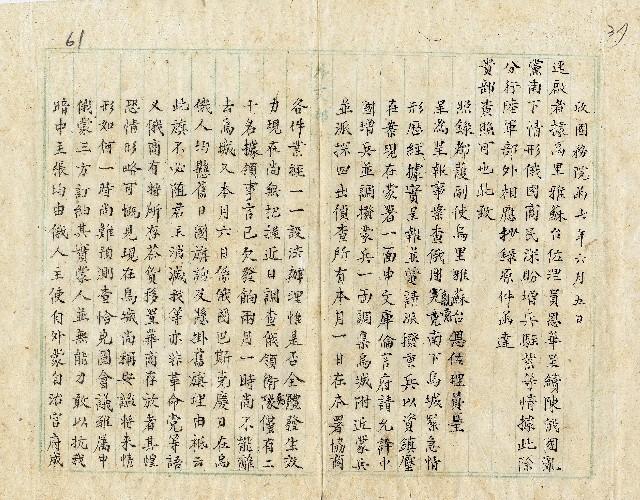 61
37
收國務院函七年六月五日
逕啟者據烏里雅蘇台佐理員恩華呈續陳俄國亂
黨南下情形俄國商民深盼增兵駐紮等情據此除
分行陸軍部外相應抄錄原件函達
貴部查照可也此致
照錄都護副使烏里雅蘇台恩佐理員呈
呈為呈報事案查俄國亂黨竟南下烏城緊急情
形歷經據實呈報並電請派撥重兵以資鎮壓
在案現在蒙署一面申文庫倫官府請允許中
國增兵並調撥蒙兵一面調集烏城附近蒙兵
並派探四出偵查所有本月一日在本署協商
各件業經一一設法辦理惟是否全體發生效
力現在尚無把握近日調查俄領衛隊僅有二
十名據領事言已欠發餉兩月一時尚不能離
去烏城又本月六日係俄國巴斯克慶日在烏
俄人均懸舊日國旗詢及懸掛舊旗理由祇云
此旗不必隨君主消滅我等亦非革命黨等語
又俄商有將所存茶貨移置華商存放者其惶
恐情形略可概見現在烏城尚稱安謐將來情
形如何一時尚難預測查恰克圖會議雖屬中
俄蒙三方訂約其實蒙人並無能力敢以抗我
暗中主張均由俄人主使自外蒙自治官府成